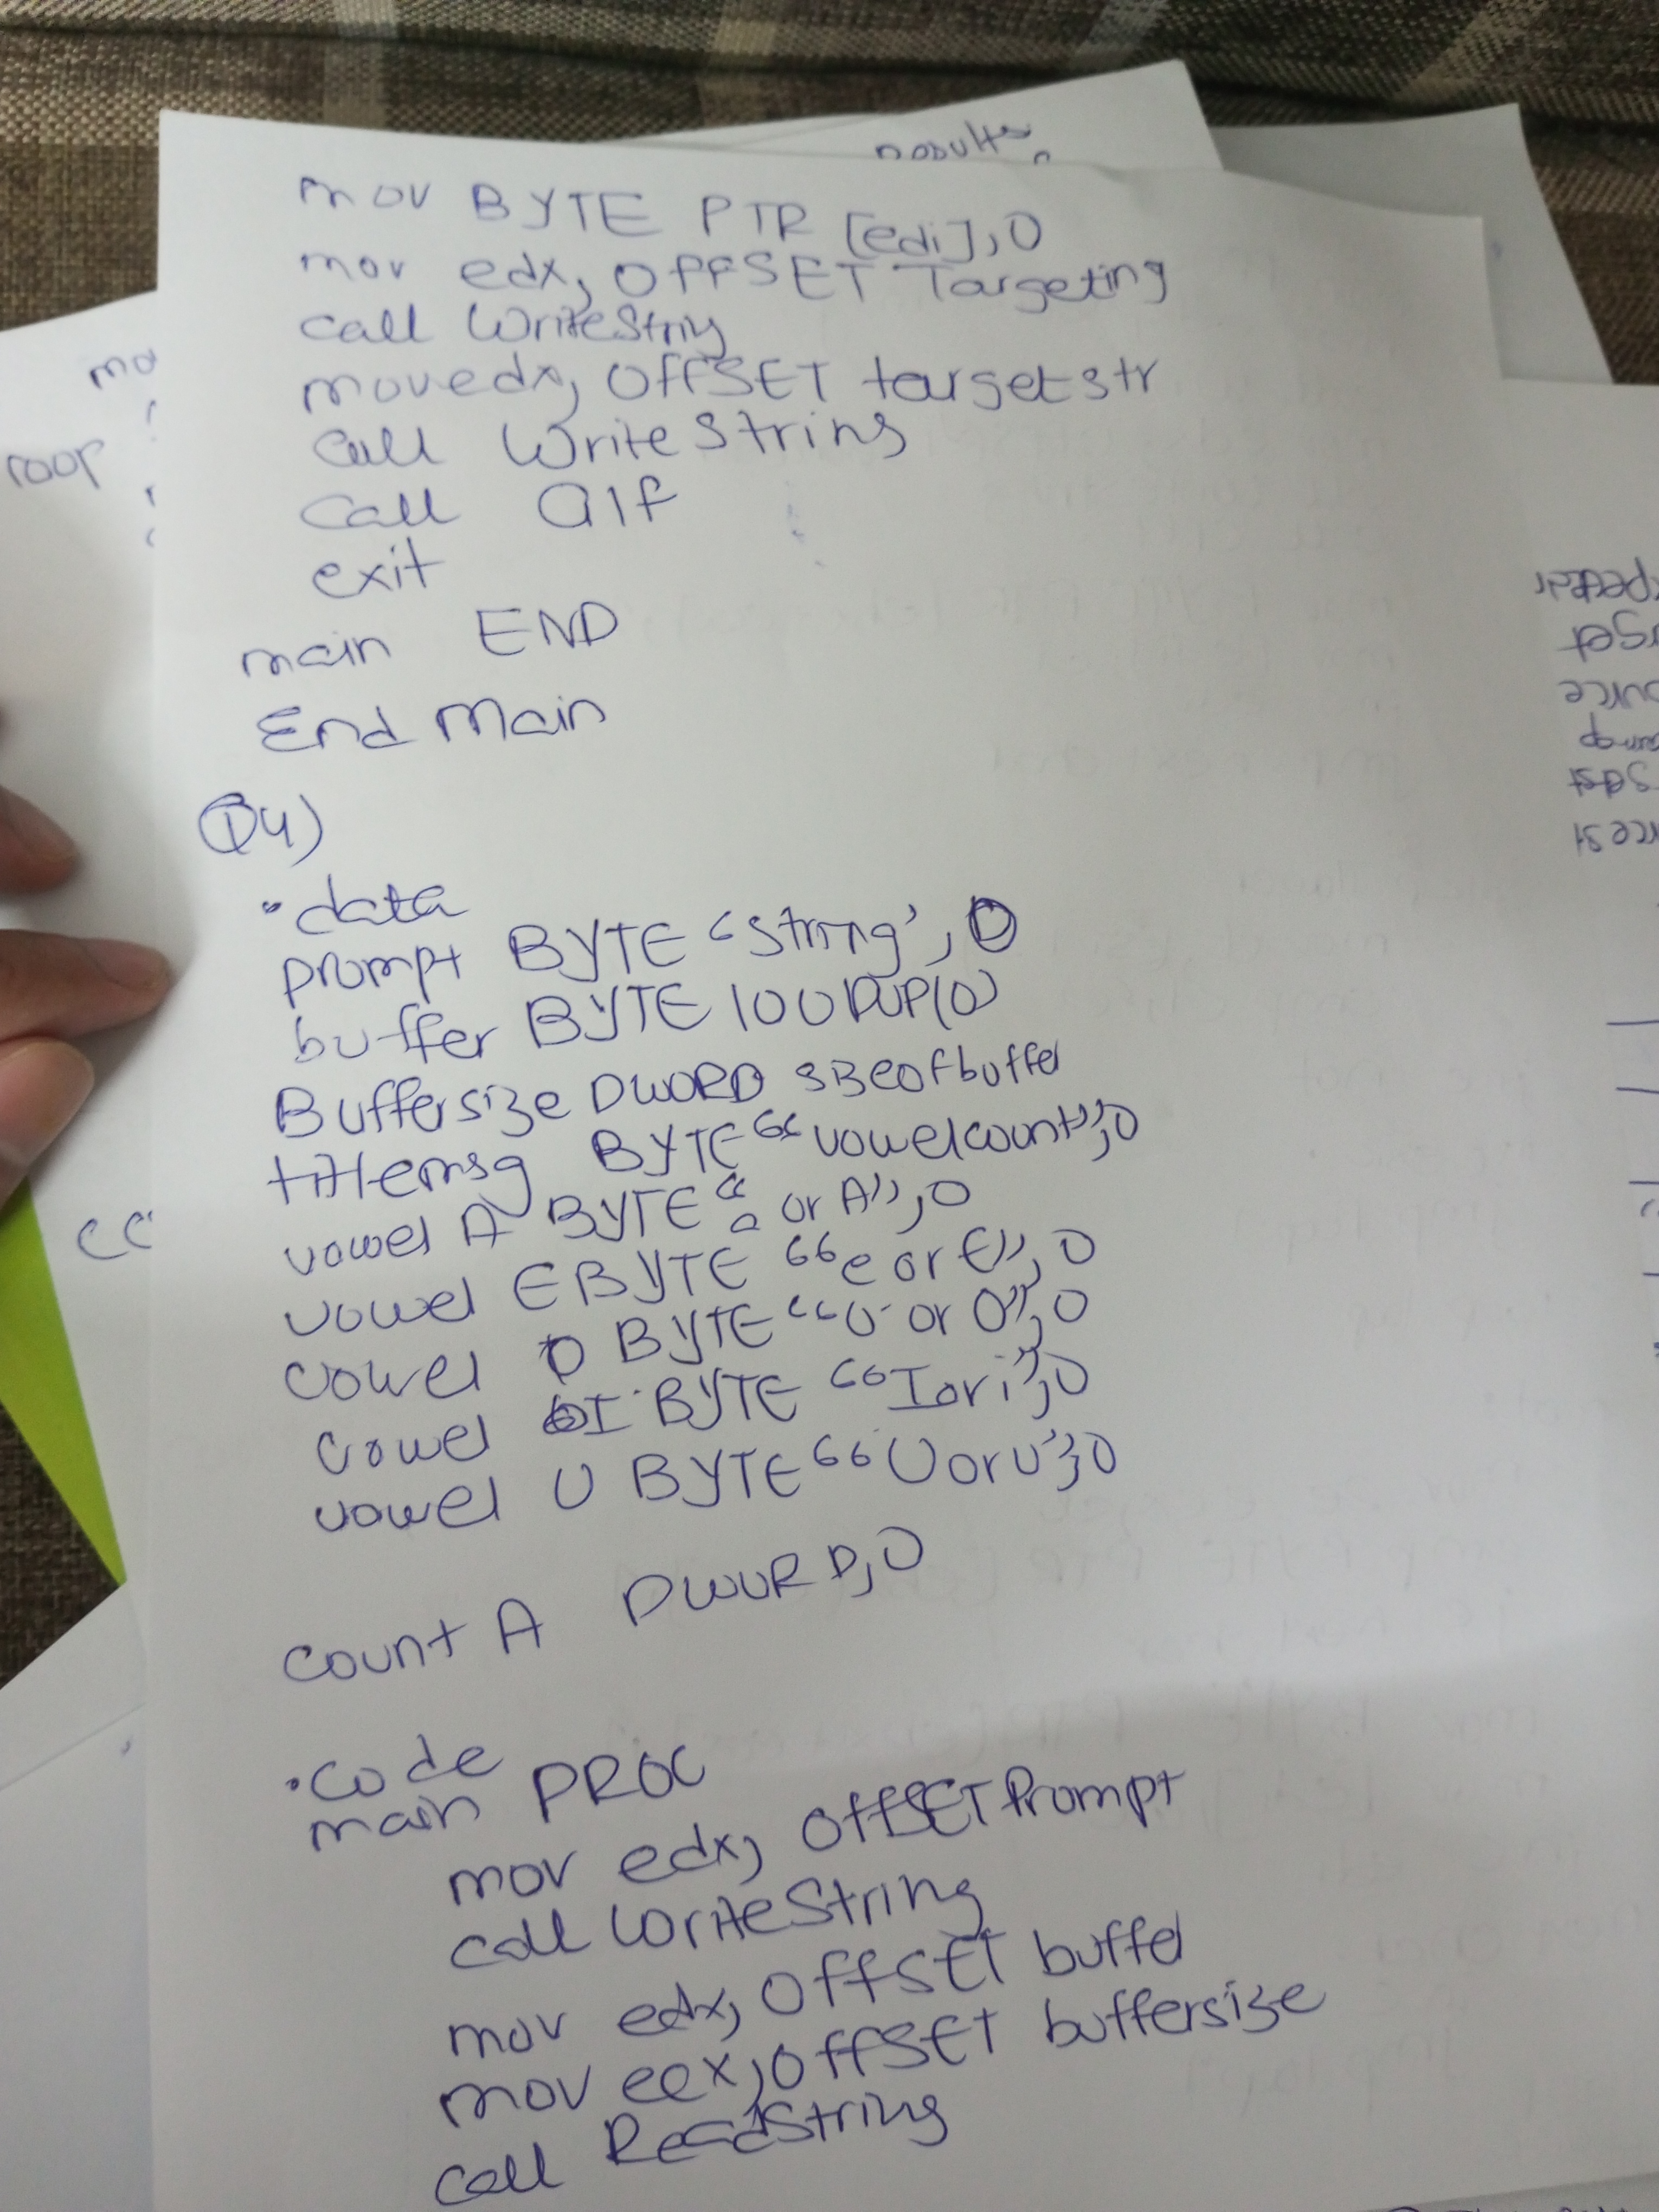 mov BYTE PTR [edi],0
mov edx, OFFSET Targeting
call WriteString
mov edx, OFFSET targetstr
call WriteString
call
exit
main END
End Main
Q4)
.data
prompt BYTE ‘string’, 0
buffer BYTE 100 DUP(0)
Buffersize DWORD sizeofbuffer
titlemsg BYTE “vowelcount”,0
vowel A BYTE “a or A”,0
vowel E BYTE “e or E”,0
vowel O BYTE “o or O”,0
vowel I BYTE “I or i”,0
vowel U BYTE “U or u”,0
count A DWORD,0
.code
main PROC
mov edx, OFFSET Prompt
call WriteString
mov edx, OFFSET buffer
mov ecx, OFFSET buffersize
call ReadString